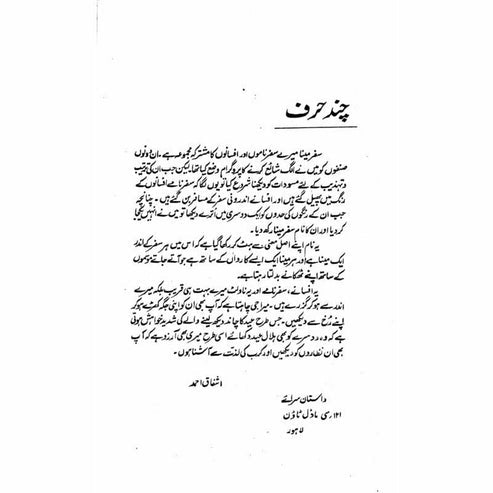 چند حرف
سفر مینا میرے سفرناموں اور افسانوں کا مشترکہ مجموعہ ہے۔ ان دونوں
صنفوں کو میں نے الگ الگ شائع کرنے کا پروگرام وضع کیا تھا۔ لیکن جب ان کی ترتیب
و تہذیب کے لئے مسودات کو دیکھنا شروع کیا تو یوں لگا کہ سفرنامے افسانوں کے
رنگ میں پھیل گئے ہیں اور افسانے اندرونی سفر کے مسافر بن گئے ہیں۔ چنانچہ
جب ان کے رنگوں کی حدوں کو ایک دوسری میں اُترے دیکھا تو میں نے انہیں یکجا
کر دیا اور ان کا نام سفر مینا رکھ دیا۔
یہ نام اپنے اصل معنی سے ہٹ کر رکھا گیا ہے کہ اس میں ہر سفر کے اندر
ایک مینا ہے اور ہر مینا ایک ایسے کارواں کے ساتھ ہے جو آتے جاتے موسموں
کے ساتھ اپنے ٹھکانے بدلتا رہتا ہے۔
یہ افسانے، سفرنامے اور یہ ناولٹ میرے بہت ہی قریب بلکہ میرے
اندر سے ہو کر گزرے ہیں۔ میرا جی چاہتا ہے کہ آپ بھی ان کو اپنی جگہ کھڑے ہو کر
اپنے رُخ سے دیکھیں۔ جس طرح عید کا چاند دیکھ لینے والے کی شدید خواہش ہوتی
ہے کہ وہ دوسرے کو بھی ہلال عید دکھائے اسی طرح میری بھی آرزو ہے کہ آپ
بھی ان نظاروں کو دیکھیں اور کرب کی لذت سے آشنا ہوں۔
اشفاق احمد
داستان سرائے
۱۲۱ سی ماڈل ٹاؤن
لاہور